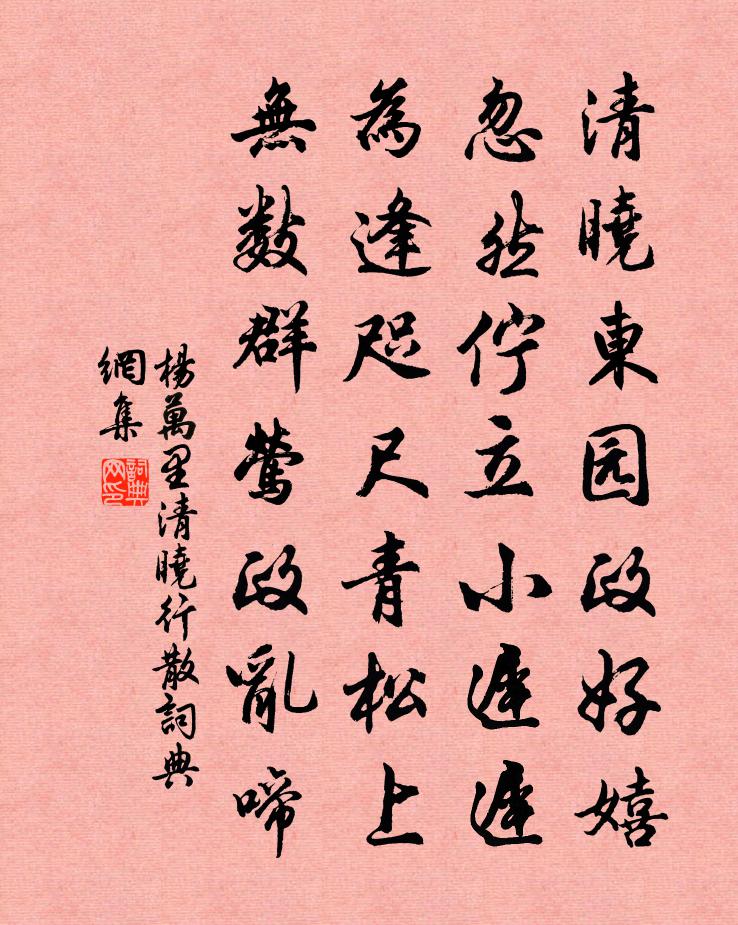 清曉東园政好嬉
忽然佇立小遲遲
為逢咫尺青松上
無數群鶯政亂啼
楊萬里清曉行散詞典
網集
詞典
网印